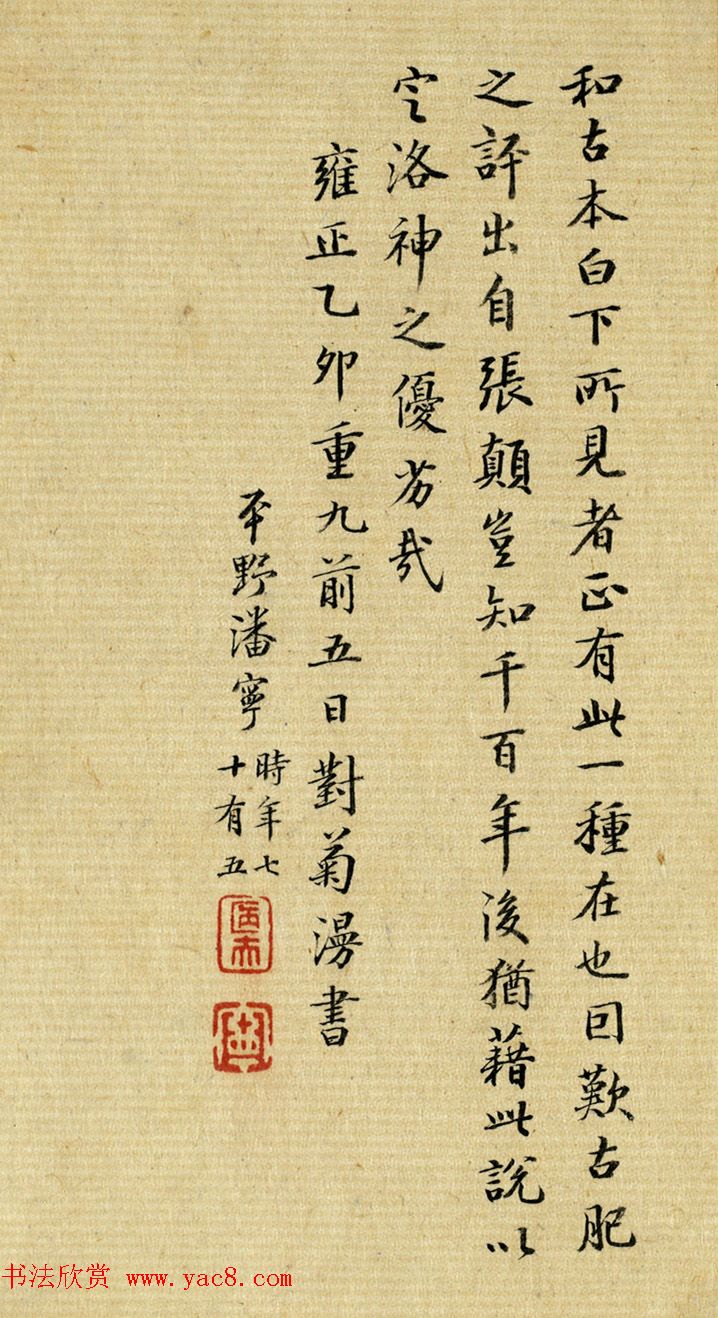 和古本白下所見者正有此一種在也回歎古肥
之評出自張顛豈知千百年後猶藉此說以
定洛神之優劣哉
雍正乙卯重九前五日對菊漫書
平野潘寧
時年七
十有五
书法欣赏 www.yac8.com